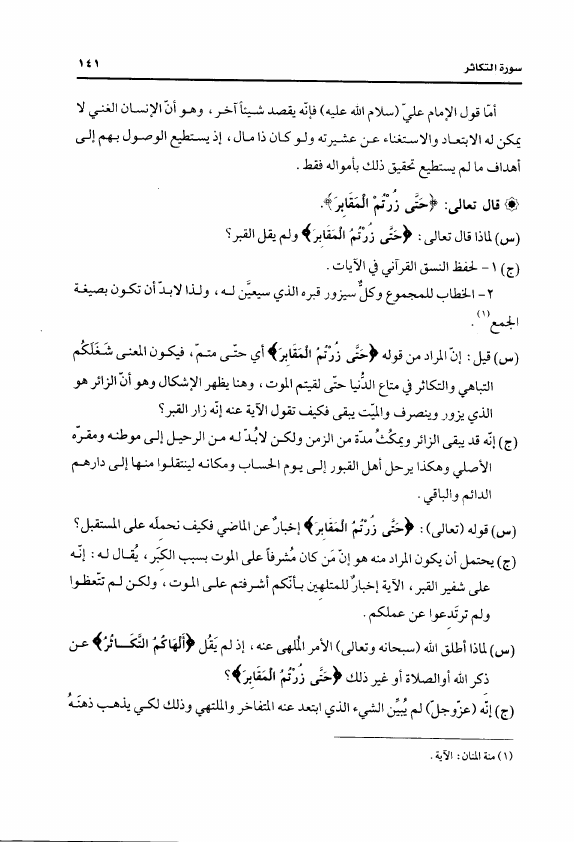 سورة التكاثر ١٤١
أمّا قول الإمام عليّ (سلام الله عليه) فإنّه يقصد شيئاً آخر، وهو أنّ الإنسان الغني لا
يمكن له الابتعاد والاستغناء عن عشيرته ولو كان ذا مال، إذ يستطيع الوصول بهم إلى
أهداف ما لم يستطيع تحقيق ذلك بأمواله فقط.
قال تعالى: ﴿حَتَّى زُرْتُمْ الْمَقَابِرَ﴾.
(س) لماذا قال تعالى: ﴿حَتَّى زُرْتُمُ الْمَقَابِرَ﴾ ولم يقل القبر؟
(ج) ١- لحفظ النسق القرآني في الآيات.
٢- الخطاب للمجموع وكلٌّ سيزور قبره الذي سيعيَّن له، ولذا لابدّ أن تكون بصيغة
الجمع(١).
(س) قيل: إنّ المراد من قوله ﴿حَتَّى زُرْتُمُ الْمَقَابِرَ﴾ أي حتّى متمّ، فيكون المعنى شَغَلَكُم
التباهي والتكاثر في متاع الدُّنيا حتّى لقيتم الموت، وهنا يظهر الإشكال وهو أنّ الزائر هو
الذي يزور وينصرف والميّت يبقى فكيف تقول الآية عنه إنّه زار القبر؟
(ج) إنّه قد يبقى الزائر ويمكُثُ مدّة من الزمن ولكن لابُدّ له من الرحيل إلى موطنه ومقرّه
الأصلي وهكذا يرحل أهل القبور إلى يوم الحساب ومكانه لينتقلوا منها إلى دارهم
الدائم والباقي.
(س) قوله (تعالى): ﴿حَتَّى زُرْتُمُ الْمَقَابِرَ﴾ إخبارٌ عن الماضي فكيف نحمله على المستقبل؟
(ج) يحتمل أن يكون المراد منه هو إنّ مَن كان مُشرفاً على الموت بسبب الكبَر، يُقال له: إنّه
على شفير القبر، الآية إخبارٌ للمتلهين بأنّكم أشرفتم على الموت، ولكن لم تتّعظوا
ولم ترتَدعوا عن عملكم.
(س) لماذا أطلق الله (سبحانه وتعالى) الأمر المُلهى عنه، إذ لم يَقُل ﴿أَلْهَاكُمُ التَّكَاثُرُ﴾ عن
ذكر الله أوالصلاة أو غير ذلك ﴿حَتَّى زُرْتُمُ الْمَقَابِرَ﴾؟
(ج) إنّه (عزّوجلّ) لم يُبيِّن الشيء الذي ابتعد عنه المتفاخر والملتهي وذلك لكي يذهب ذهنَهُ
(١) منة المنان: الآية.